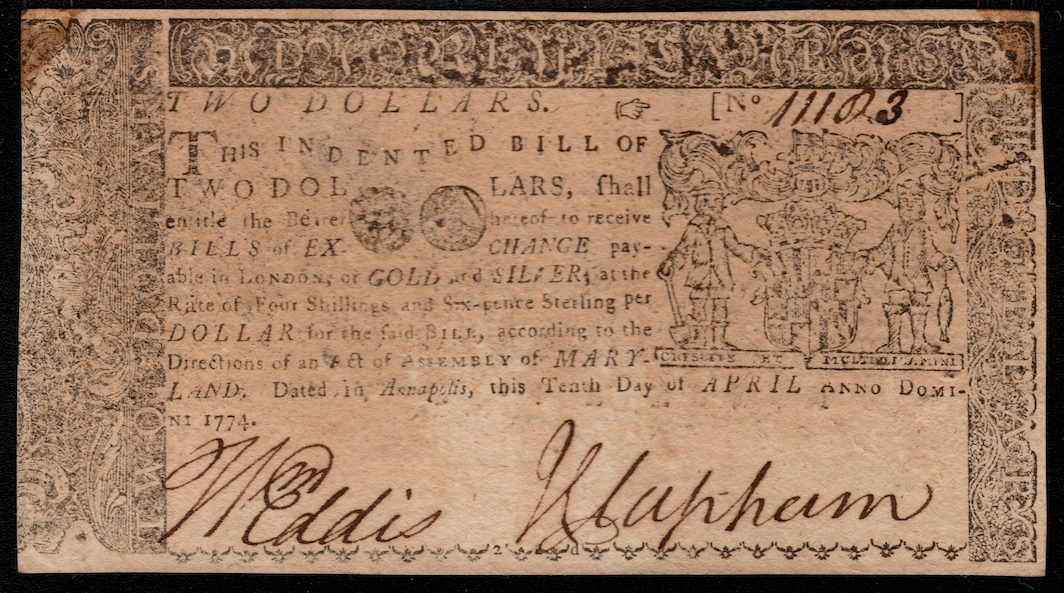 TWO DOLLARS. ☞ [No 11183 ]
THIS INDENTED BILL OF
TWO DOL LARS, ſhall
entitle the Bearer hereof to receive
BILLS of EX CHANGE pay-
able in LONDON, or GOLD and SILVER, at the
Rate of Four Shillings and Six-pence Sterling per
DOLLAR for the ſaid BILL, according to the
Directions of an Act of ASSEMBLY of MARY-
LAND. Dated in Annapolis, this Tenth Day of APRIL ANNO DOMI-
NI 1774.
CRESCITE ET MULTIPLICAMINI
Wm Eddis J Clapham